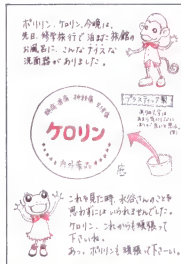 ポリリン、ケロリン、今晩は。
先日、修学旅行で泊まった旅館の
お風呂に、こんなナイスな
洗面器がありました。
プラスティック製
頭痛・生理痛・神経痛・
ケロリン
内外薬品
底
これを見た時、水谷さんのことを
思わずにはいられませんでした。
ケロリン、これからも頑張って
下さいね。
あっ、ポリリンも頑張って下さーい。